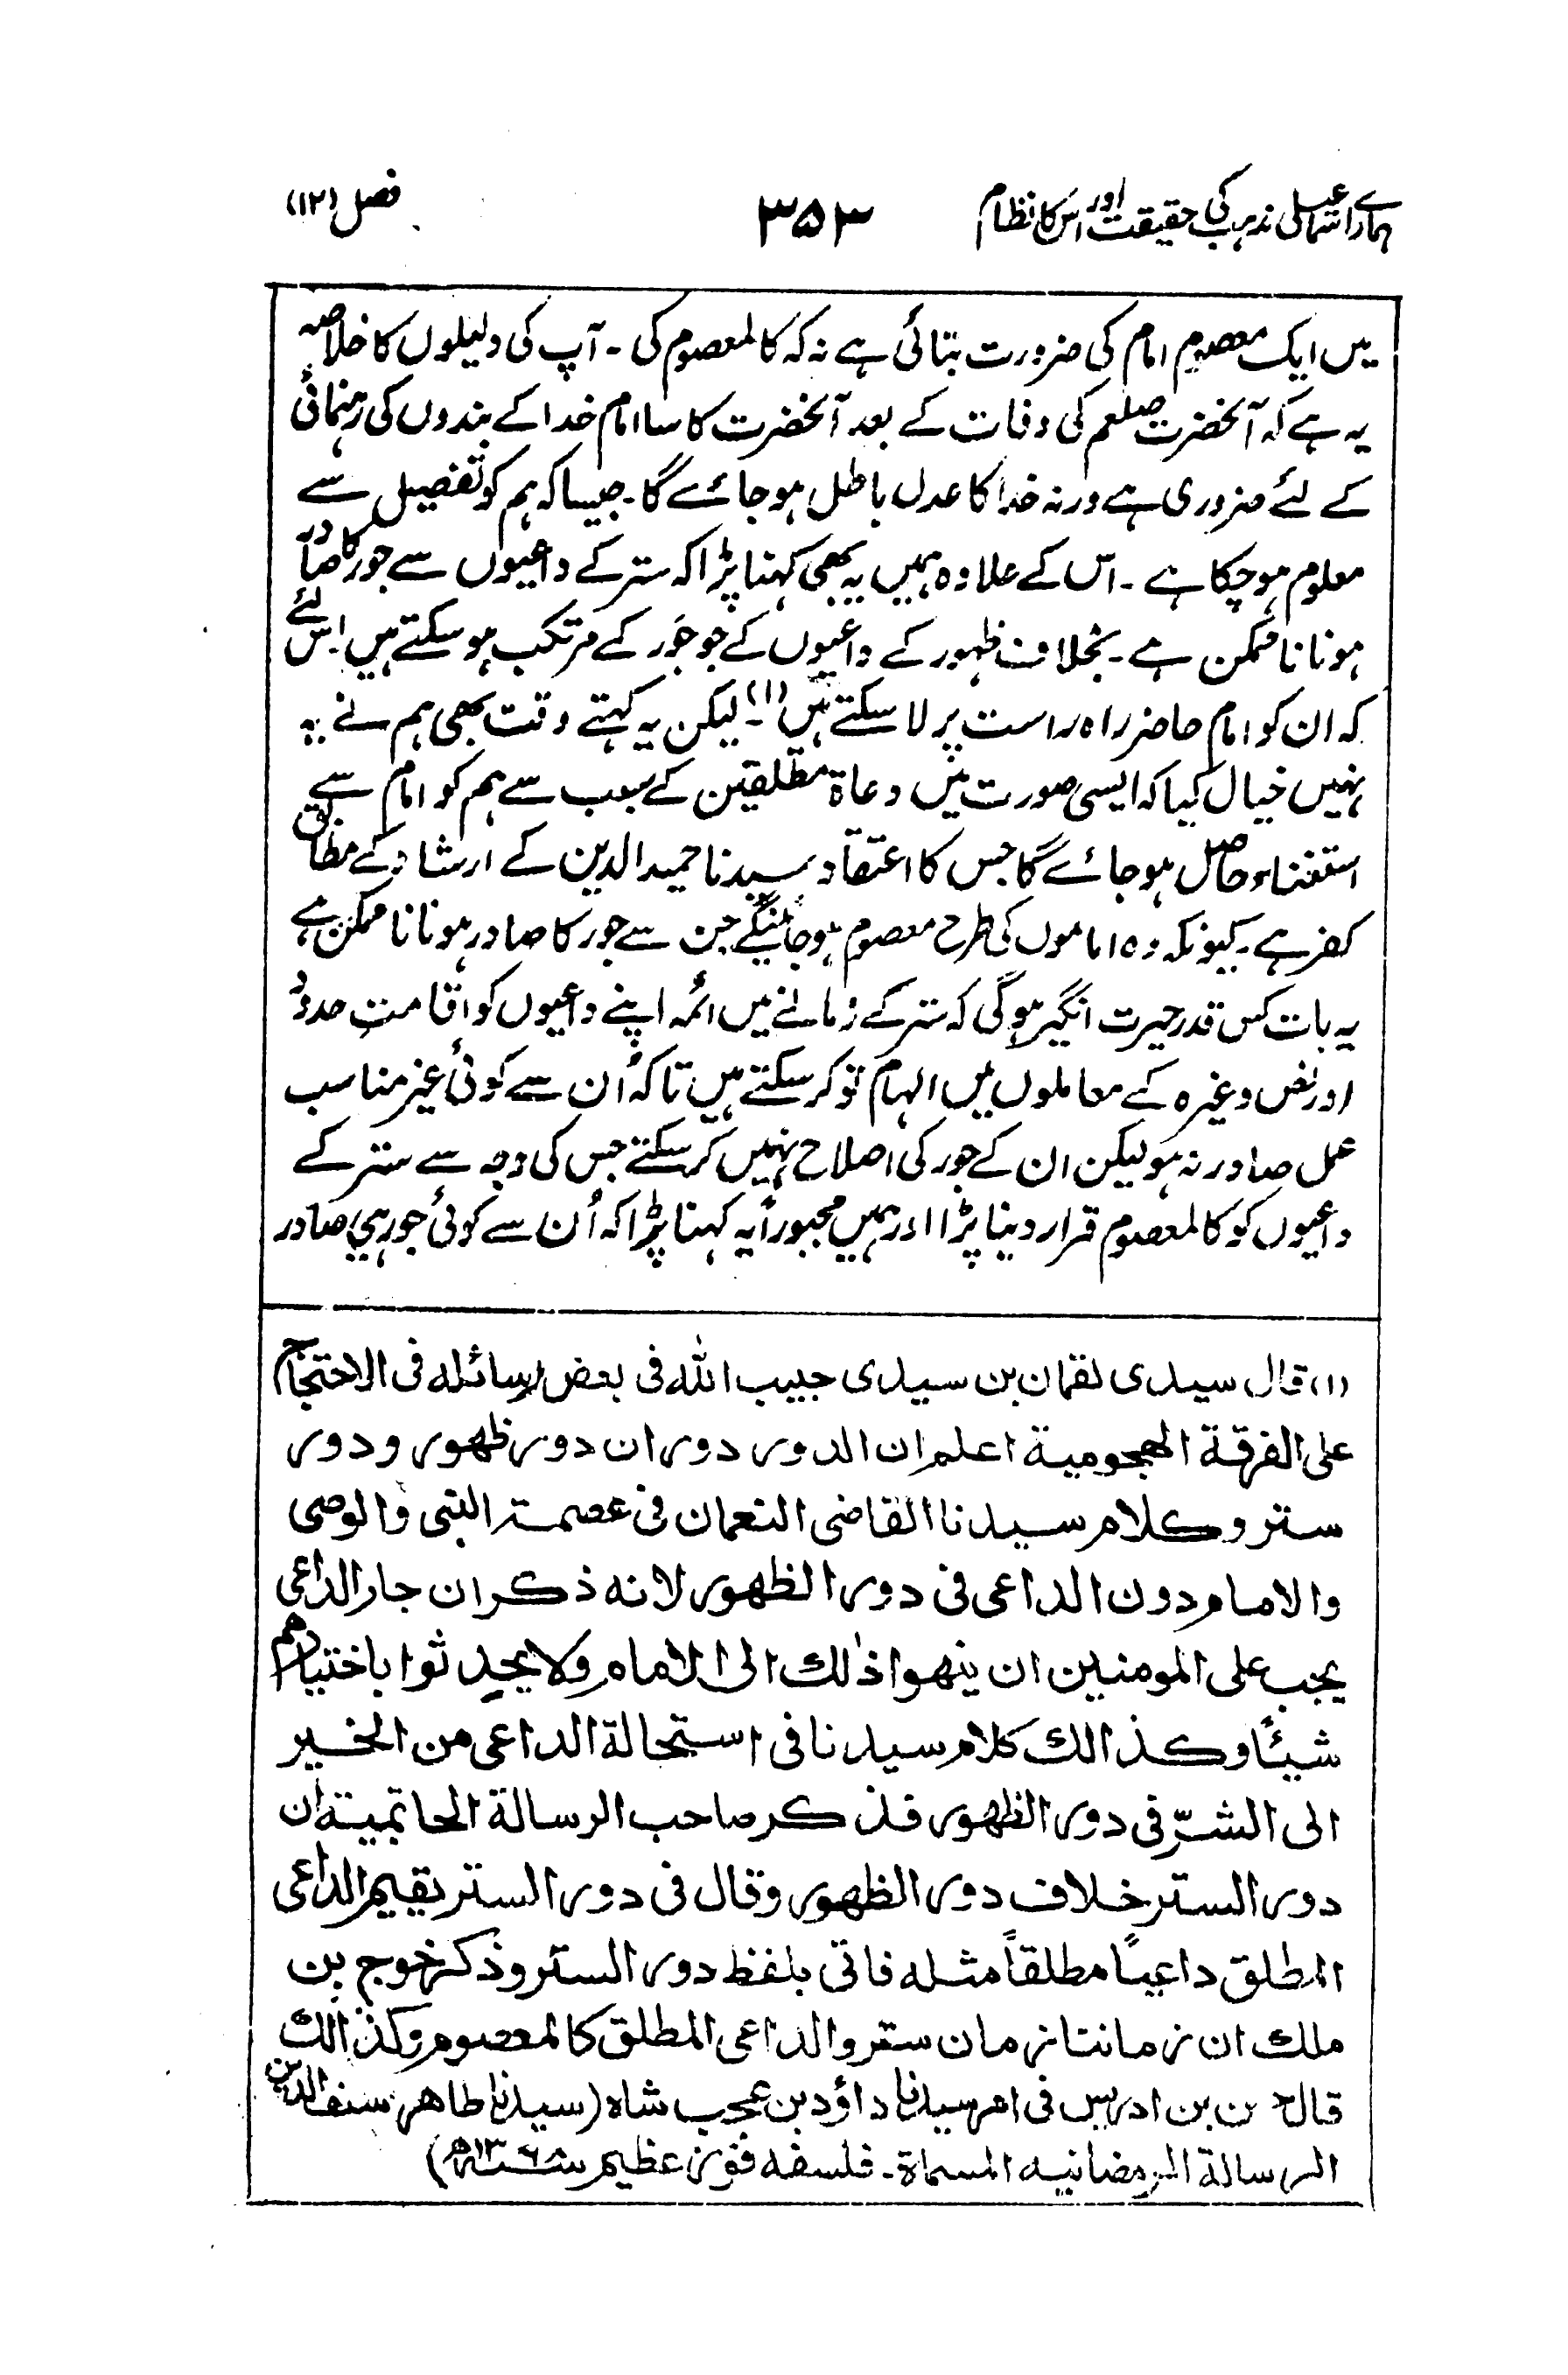 ہمارے اسماعیلی مذہب کی حقیقت اور اس کا نظام
۳۵۳
فصل (۱۲)
میں ایک معصوم امام کی ضرورت بتائی ہے نہ کہ کالمعصوم کی ۔ آپ کی دلیلوں کا خلاصہ
یہ ہے کہ آنحضرت صلعم کی وفات کے بعد آنحضرت کا سا امام خدا کے بندوں کی رہنمائی
کے لئے ضروری ہے ورنہ خدا کا عدل باطل ہو جائے گا ۔ جیسا کہ ہم کو تفصیل سے
معلوم ہو چکا ہے ۔ اس کے علاوہ ہمیں یہ بھی کہنا پڑا کہ ستر کے داعیوں سے جور کا صادر
ہونا ناممکن ہے ۔ بخلاف ظہور کے داعیوں کے جو جَور کے مرتکب ہو سکتے ہیں اِس لئے
کہ ان کو امام حاضر راہ راست پر لا سکتے ہیں (۱) ۔ لیکن یہ کہتے وقت بھی ہم نے یہ
نہیں خیال کیا کہ ایسی صورت میں دعاۃ مطلقین کے سبب سے ہم کو امام سے
استغناء حاصل ہو جائے گا جس کا اعتقاد سیدنا حمید الدین کے ارشاد کے مطابق
کفر ہے ۔ کیونکہ وہ اماموں کی طرح معصوم ہو جائینگے جن سے جور کا صادر ہونا ناممکن ہے
یہ بات کس قدر حیرت انگیز ہوگی کہ ستر کے زمانے میں ائمہ اپنے داعیوں کو اقامتِ حدود
اور نص وغیرہ کے معاملوں میں الہام تو کر سکتے ہیں تاکہ اُن سے کوئی غیر مناسب
عمل صادر نہ ہو لیکن ان کے جور کی اصلاح نہیں کر سکتے جس کی وجہ سے ستر کے
داعیوں کو کالمعصوم قرار دینا پڑا اور ہمیں مجبوراً یہ کہنا پڑا کہ اُن سے کوئی جور ہی صادر
(۱) قال سیدی لقمان بن سیدی حبیب اللہ فی بعض رسائلہ فی الاحتجاج
علی الفرقة الهجومية اعلم ان الدور دوران دور ظهور و دور
ستر وکلام سیدنا القاضی النعمان فی عصمة النبی والوصی
والامام دون الداعی فی دور الظهور لانه ذکر ان جار الداعی
یجب علی المومنین ان ینهوا ذلك الی الامام ولا یحدثوا باختیارهم
شیئًا وکذالك کلام سیدنا فی استحالة الداعی من الخیر
الی الشرّ فی دور الظهور فذکر صاحب الرسالة الحاتمیة ان
دور الستر خلاف دور الظهور وقال فی دور الستر یقیم الداعی
المطلق داعیًا مطلقاً مثله فاتی بلفظ دور الستر وذکر خوج بن
ملك ان زماننا زمان ستر والداعی المطلق کالمعصوم وکذالك
قال ح ن بن ادریس فی امر سیدنا داؤد بن عجب شاه (سیدنا طاهر سیف الدین
الرسالة الرمضانیه المسماة ۔ فلسفه فوز عظیم سنه ۱۳۶۸ھ)